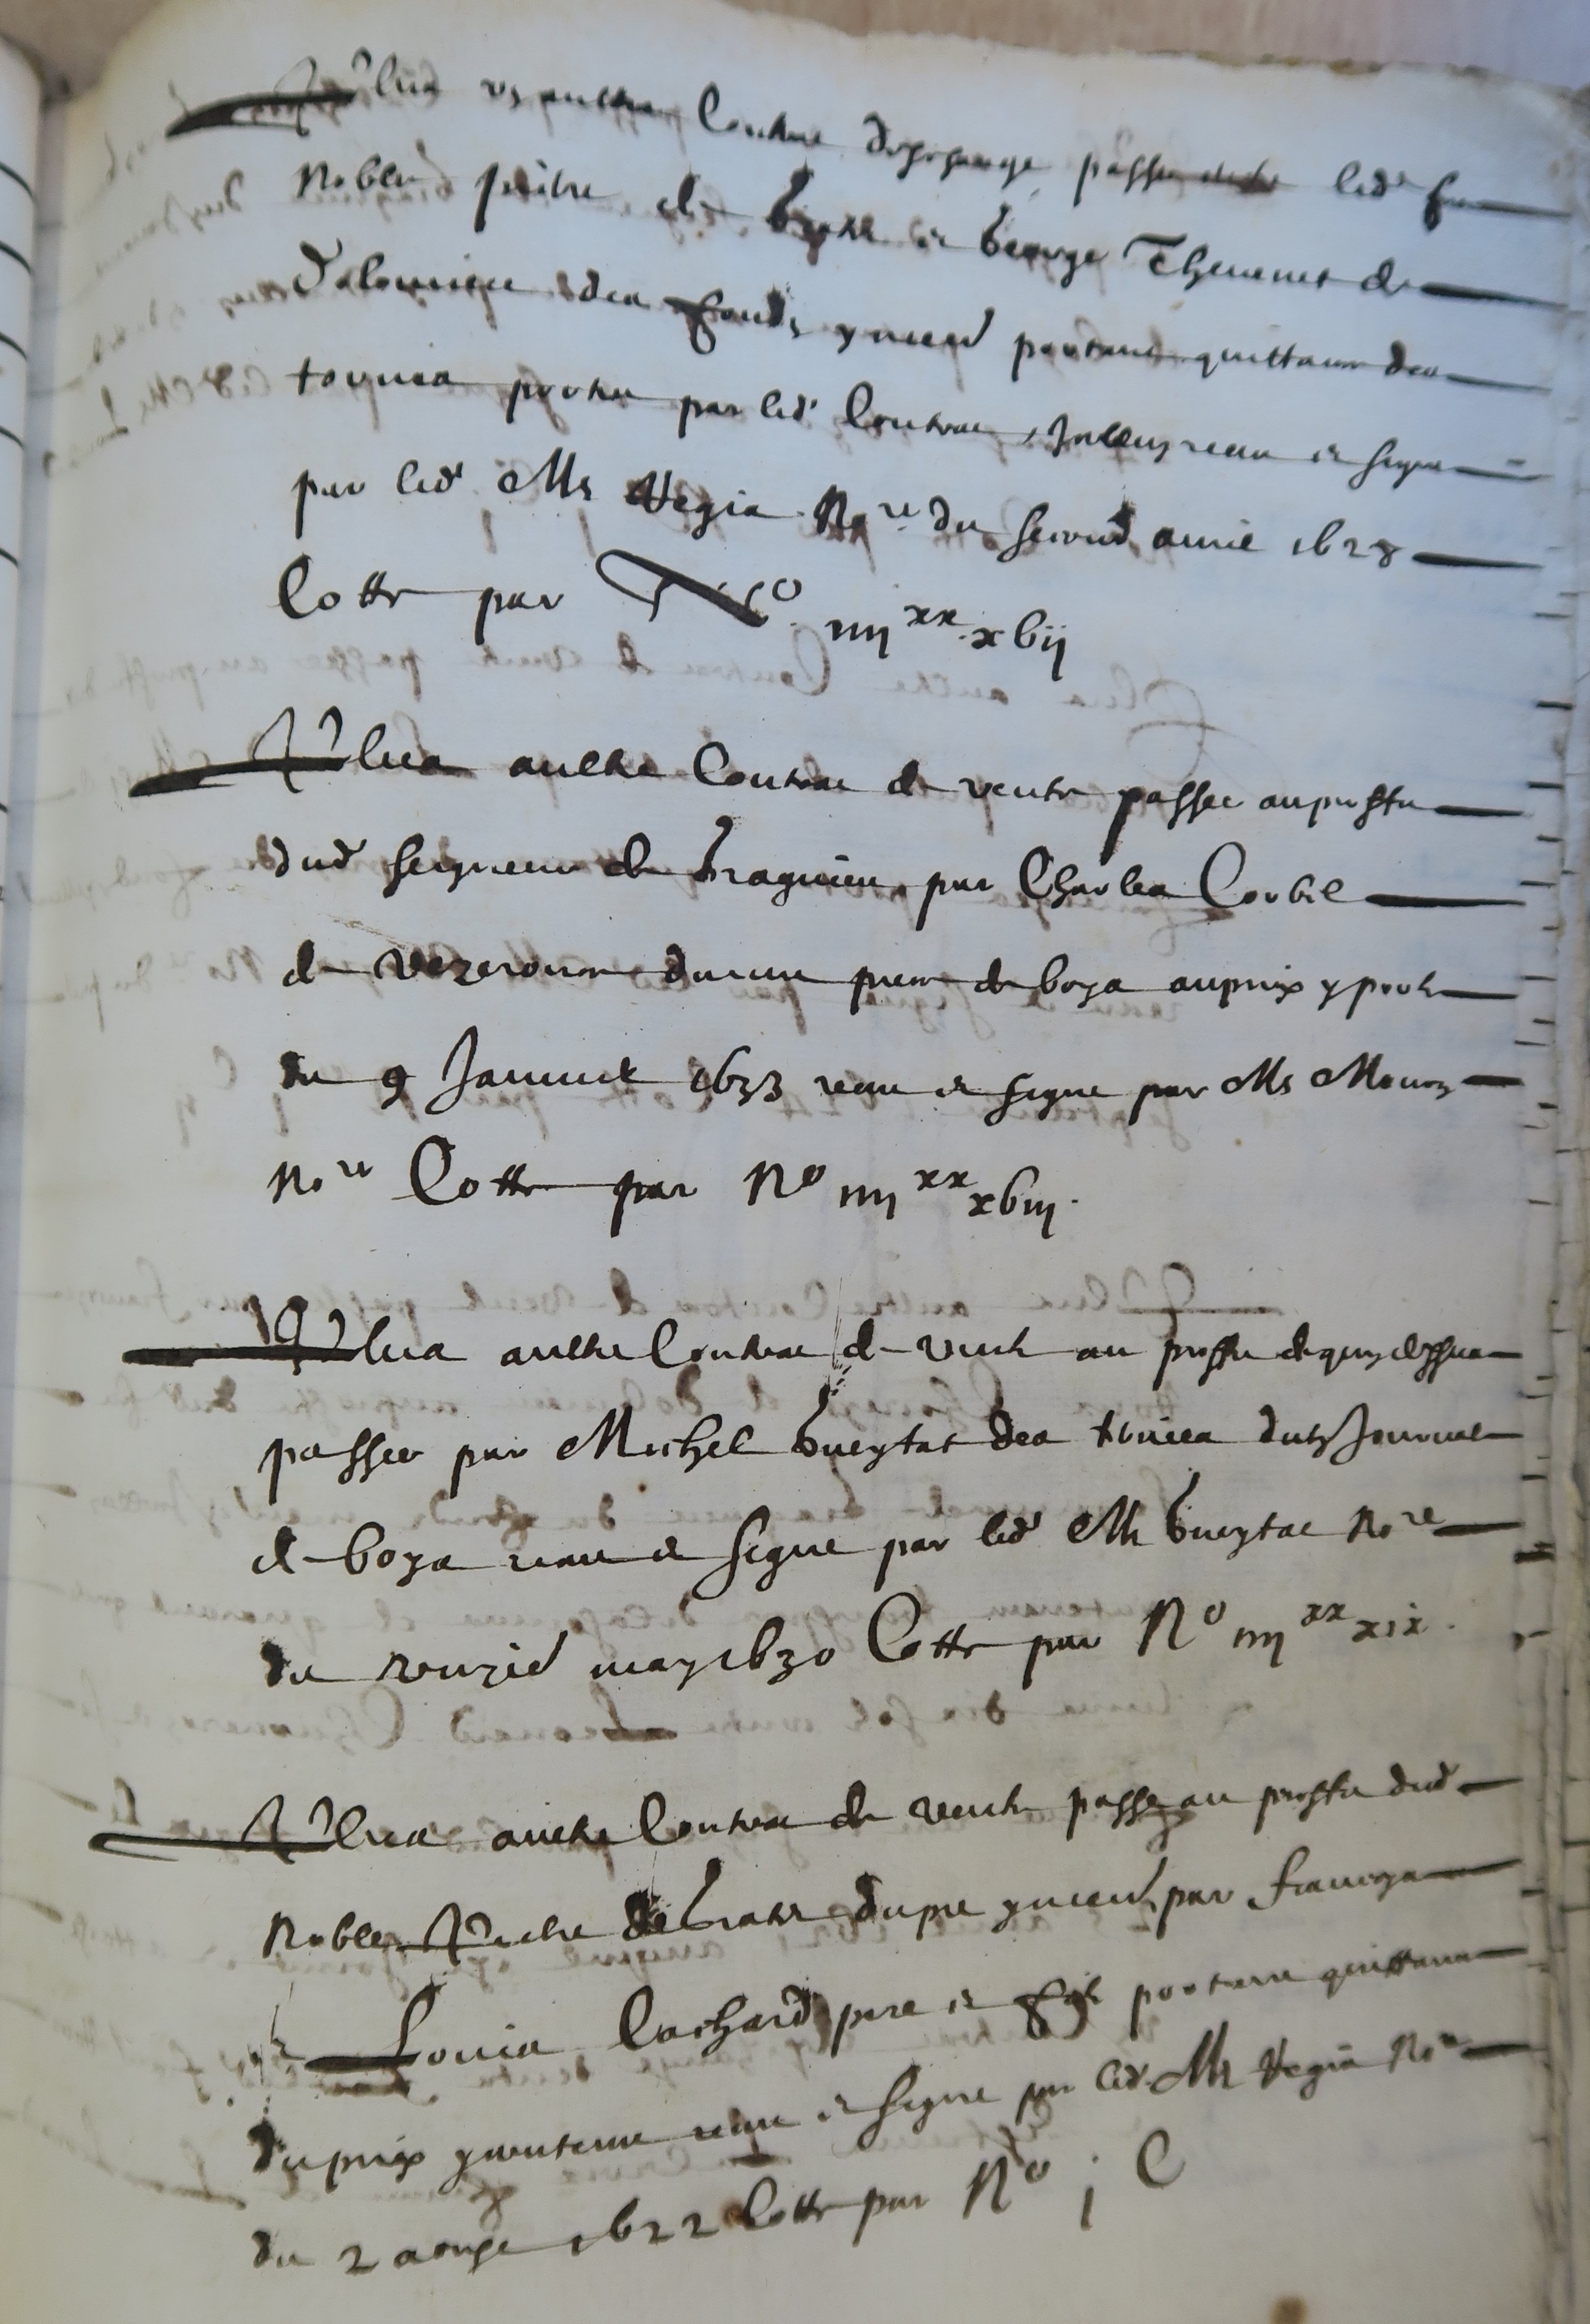 Plus un aultre Contrat deschange passe entre led feu
Noble pierre de et George Thevenet de
Dolomieu des fondz y mend portant quittance des
tornes portes par led Contrat, receu et signe
par led Me Vegis Nore du second avril 1628
Cotte par No iiii xx xvii
Plus aultre Contrat de vente passee au proffit
dud seigneur de Bragnieu par Charles Corbel
de Vezeronce dune piece de boys au prix y porte
du 9 Janvier 1633 receu et signe par Me
Nore Cotte par No iiii xx xviii
Plus aultre Contrat de vente au proffit de que dessus
passee par Michel Gueytat des dung Journal
de boys receu et signe par led Me Gueytat Nore
du may 1630 Cotte par No iiii xx xix
Plus aultre Contrat de vente passe au proffit dud
Noble Pierre de du pre y mend par francoys
et Louis Cochard pere et filz portant quittance
du prix y contenu receu et signe par led Me Vegis Nore
du 2 aoust 1622 Cotte par No j C